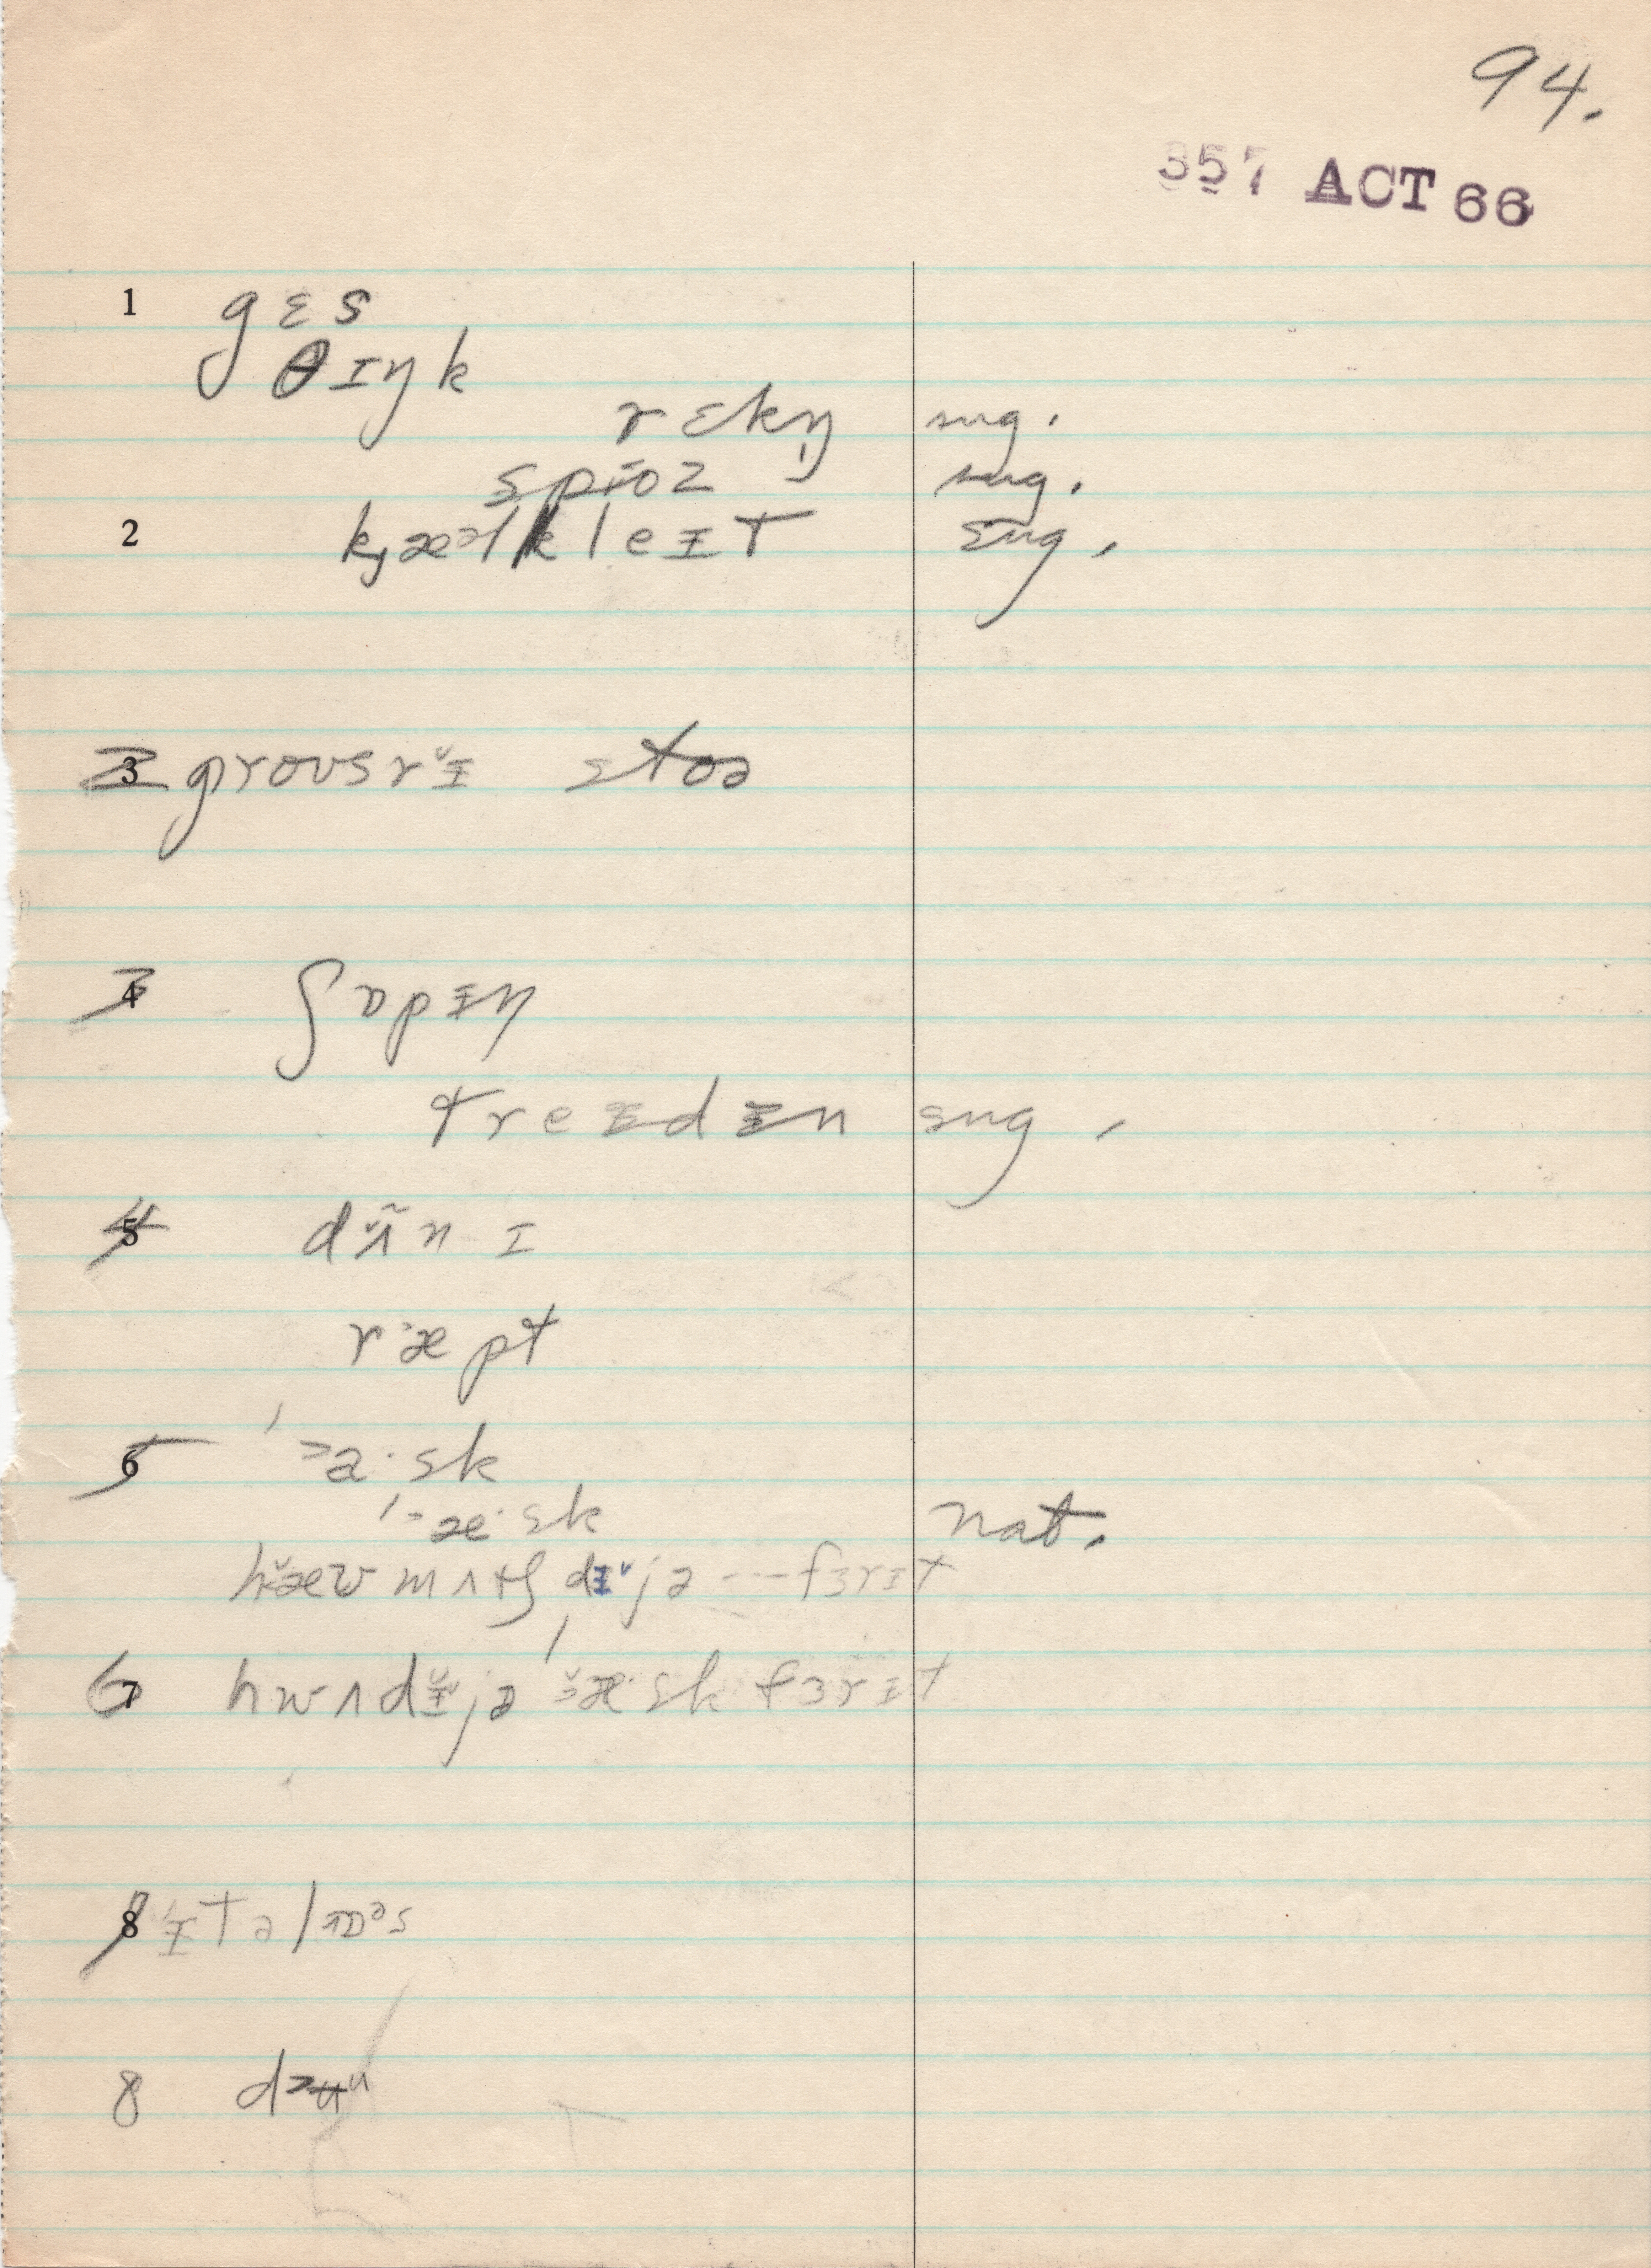 94.
357 ACT 66
1 gɛs
θɪŋk
rɛkŋ̩ sug.
spɨoz sug.
2 kjæəlkleɪt sug.
3 groʊsrɪ̆ stoə
3 ʃɒpɪŋ
treɪdɪn sug.
4 dʌ̃n ɪ
ræpt
5 ˈ˃a·sk
ˈ˃æ·sk nat.
hæ̆ʊ mʌtʃ dɪ̆jə --- fɜrɪt
6 hwʌdɪ̆jə ˈæ̆·sk fɜrɪt
8
8